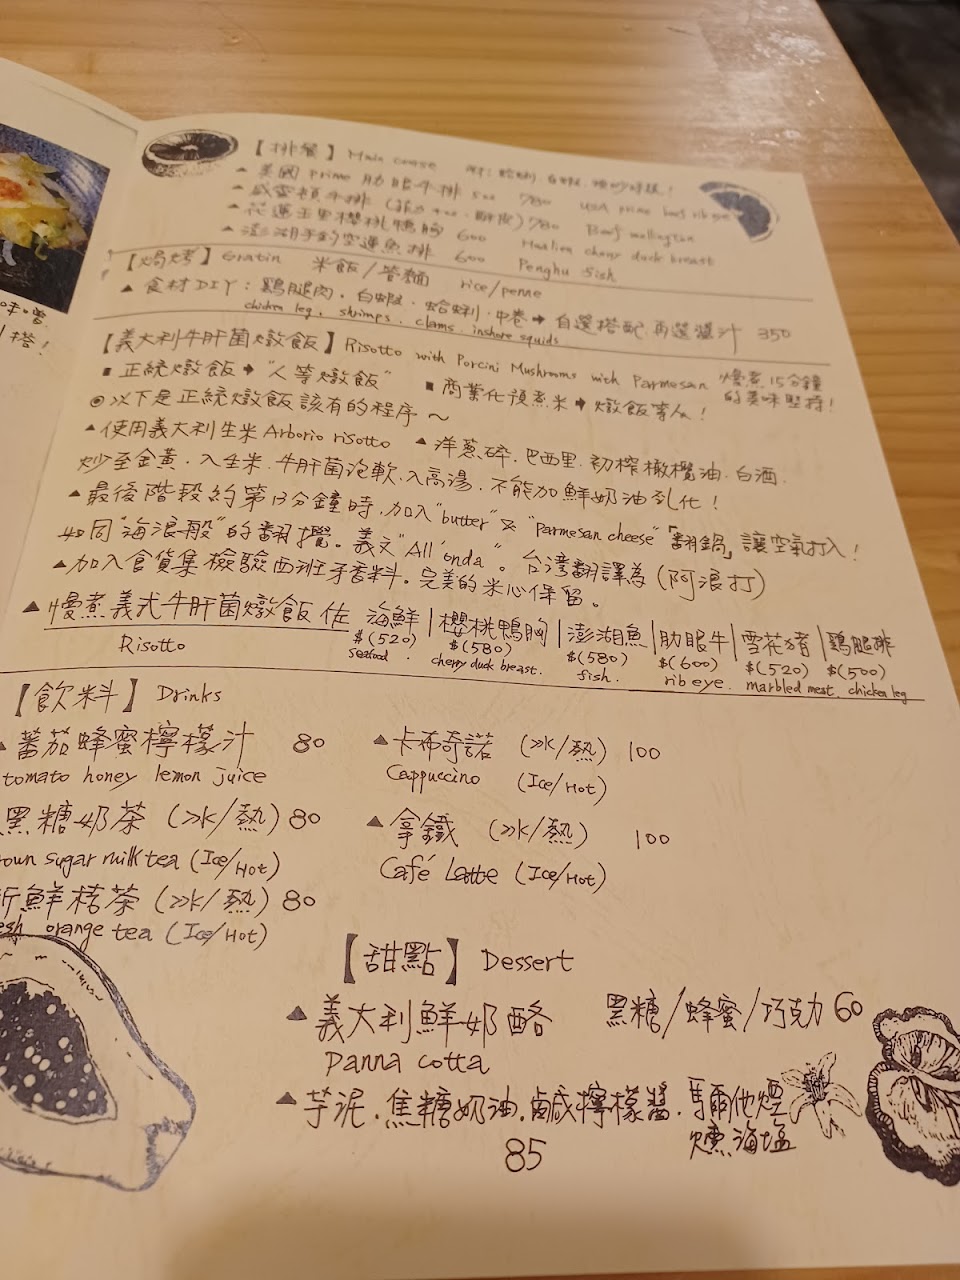 味噌
搭！
【排餐】 Main course
▲ 美國 prime 肋眼牛排 5oz 780 USA prime beef rib eye
▲ 威靈頓牛排 780 Beef wellington
▲ 花蓮玉里櫻桃鴨胸 600 Hualien cherry duck breast
▲ 澎湖手釣空運魚排 600 Penghu fish
【焗烤】 Gratin 米飯/管麵 rice/penne
▲ 食材DIY：雞腿肉．白蝦．蛤蜊．中卷→自選搭配,再選醬汁 350
chicken leg, shrimps, clams, inshore squids
【義大利牛肝菌燉飯】 Risotto with Porcini Mushrooms with Parmesan 慢煮15分鐘的美味堅持！
■ 正統燉飯→“人等燉飯” ■ 商業化預煮米→燉飯等人！
◎以下是正統燉飯該有的程序～
▲使用義大利生米Arborio risotto ▲洋蔥碎．巴西里．初榨橄欖油．白酒．
炒至金黃．入生米．牛肝菌泡軟．入高湯．不能加鮮奶油乳化！
▲最後階段約第13分鐘時,加入"butter" & "Parmesan cheese"「翻鍋」讓空氣打入！
如同"海浪般"的翻攪。義文"All 'onda"。台灣翻譯為(阿浪打)
▲加入食貨集檢驗西班牙香料。完美的米心保留。
▲慢煮義式牛肝菌燉飯佐 海鮮|櫻桃鴨胸|澎湖魚|肋眼牛|雪花豬|雞腿排
Risotto $(520) $(580) $(580) $(600) $(520) $(500)
seafood. cherry duck breast. fish. rib eye. marbled meat. chicken leg
【飲料】 Drinks
▲蕃茄蜂蜜檸檬汁 80 ▲卡布奇諾 (冰/熱) 100
tomato honey lemon juice Cappuccino (Ice/Hot)
黑糖奶茶 (冰/熱) 80 ▲拿鐵 (冰/熱) 100
rown sugar milk tea (Ice/Hot) Café Latte (Ice/Hot)
新鮮桔茶 (冰/熱) 80
esh orange tea (Ice/Hot)
【甜點】 Dessert
▲義大利鮮奶酪 黑糖/蜂蜜/巧克力 60
Panna cotta
▲芋泥．焦糖奶油．鹹檸檬醬．馬爾他煙燻海塩
85